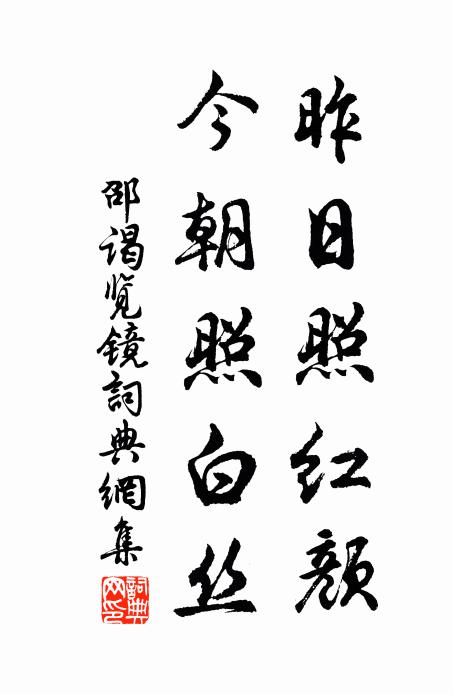 昨日照红颜
今朝照白丝
邵谒览镜詞典網集
詞典网印